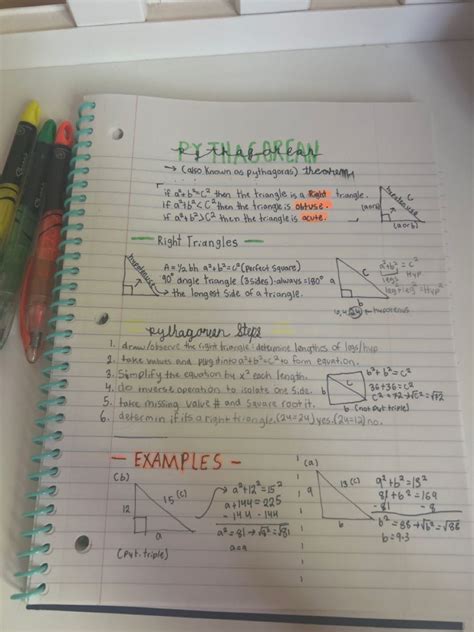 PYTHAGOREAN
pythagorean
→ (also known as pythagoras) theorem
if a²+b²=c² then the triangle is a Right triangle.
if a²+b²<c² then the triangle is obtuse.
if a²+b²>c² then the triangle is acute.
hypotenuse
c
(a or b)
(a or b)
— Right Triangles —
A = ½ bh a²+b²=c² (perfect square)
90° angle triangle (3 sides)-always=180°
→ the longest side of a triangle.
a
c
b
a²+b²=c²
leg² Hyp²
leg²+leg²=Hyp²
pythagorean Steps
1. draw/observe the right triangle/determine lengths of legs/hyp
2. take values and plug into a²+b²=c² to form equation.
3. Simplify the equation by x² each length.
4. do inverse operation to isolate one side.
5. take missing value # and square root it.
6. determin if its a right triangle.(24=24) yes.(24=12) no.
b
c
b (not put.triple)
b²+b²=c²
36+36=c²
c²=72→√c²=√72
— EXAMPLES —
(b)
12
15 (c)
a
(pyt.triple)
a²+12²=15²
a+144=225
-144 -144
a²=81→√a²=√81
a=9
(a)
9
13 (c)
b
9²+b²=13²
81+b²=169
-81 -8
b²=88→√b²=√88
b=9.3